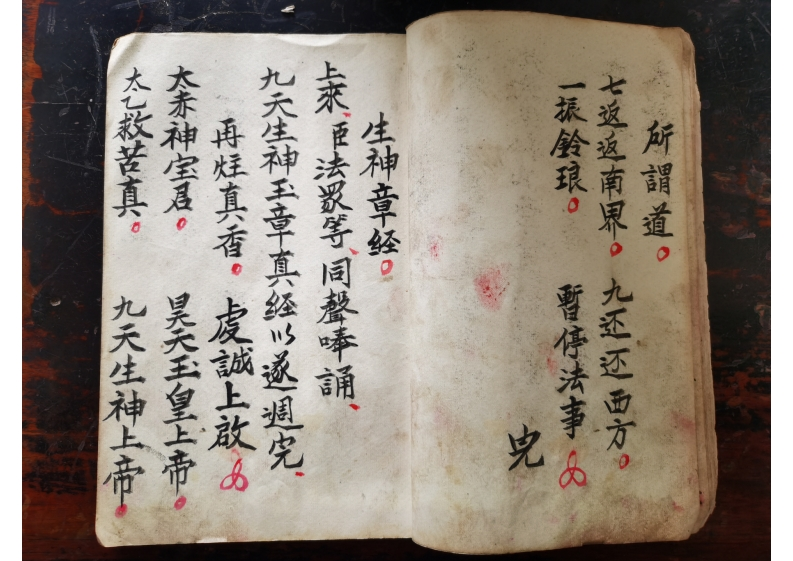 所謂道
七返返南界 九还还西方
一振鈴琅 暫停法事
生神章經
上來臣法眾等同聲唪誦
九天生神玉章真經以遂週完
再炷真香 虔誠上啟
大赤神宝君 昊天玉皇上帝
太乙救苦真 九天生神上帝